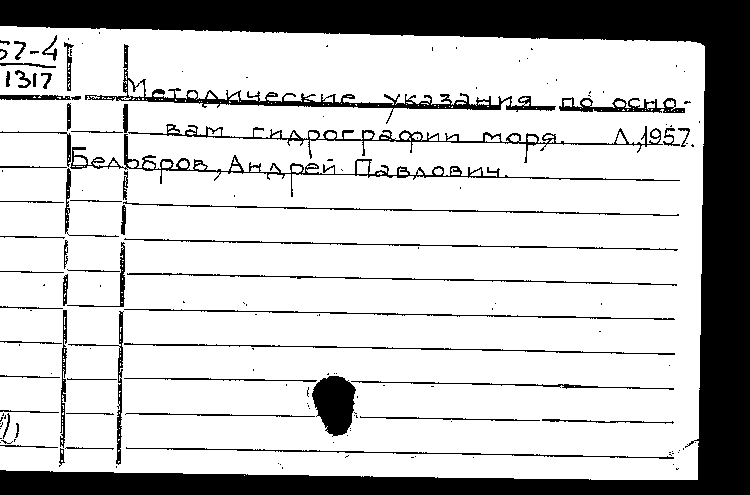 57-4
1317
Методические указания по осно-
вам гидрографии моря. Л., 1957.
Белобров, Андрей Павлович.